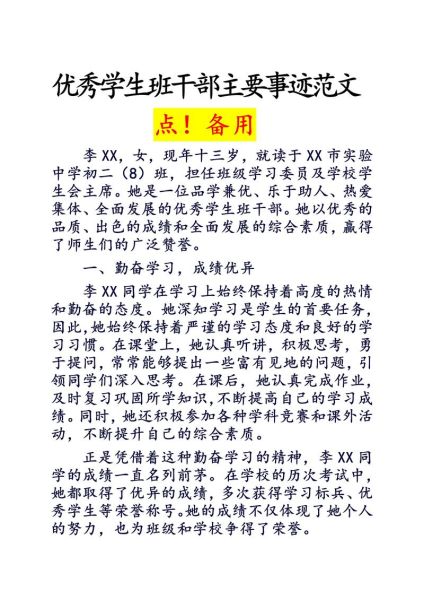 优秀学生班干部主要事迹范文
点！备用
李 XX，女，现年十三岁，就读于 XX 市实验
中学初二（8）班，担任班级学习委员及学校学
生会主席。她是一位品学兼优、乐于助人、热爱
集体、全面发展的优秀学生班干部。她以优秀的
品质、出色的成绩和全面发展的综合素质，赢得
了师生们的广泛赞誉。
一、勤奋学习，成绩优异
李 XX 同学在学习上始终保持着高度的热情
和勤奋的态度。她深知学习是学生的首要任务，
因此，她始终保持着严谨的学习态度和良好的学
习习惯。在课堂上，她认真听讲，积极思考，勇
于提问，常常能够提出一些富有见地的问题，引
领同学们深入思考。在课后，她认真完成作业，
及时复习巩固所学知识，不断提高自己的学习成
绩。同时，她还积极参加各种学科竞赛和课外活
动，不断提升自己的综合素质。
正是凭借着这种勤奋学习的精神，李 XX 同
学的成绩一直名列前茅。在学校的历次考试中，
她都取得了优异的成绩，多次获得学习标兵、优
秀学生等荣誉称号。她的成绩不仅体现了她个人
的努力，也为班级和学校争得了荣誉。